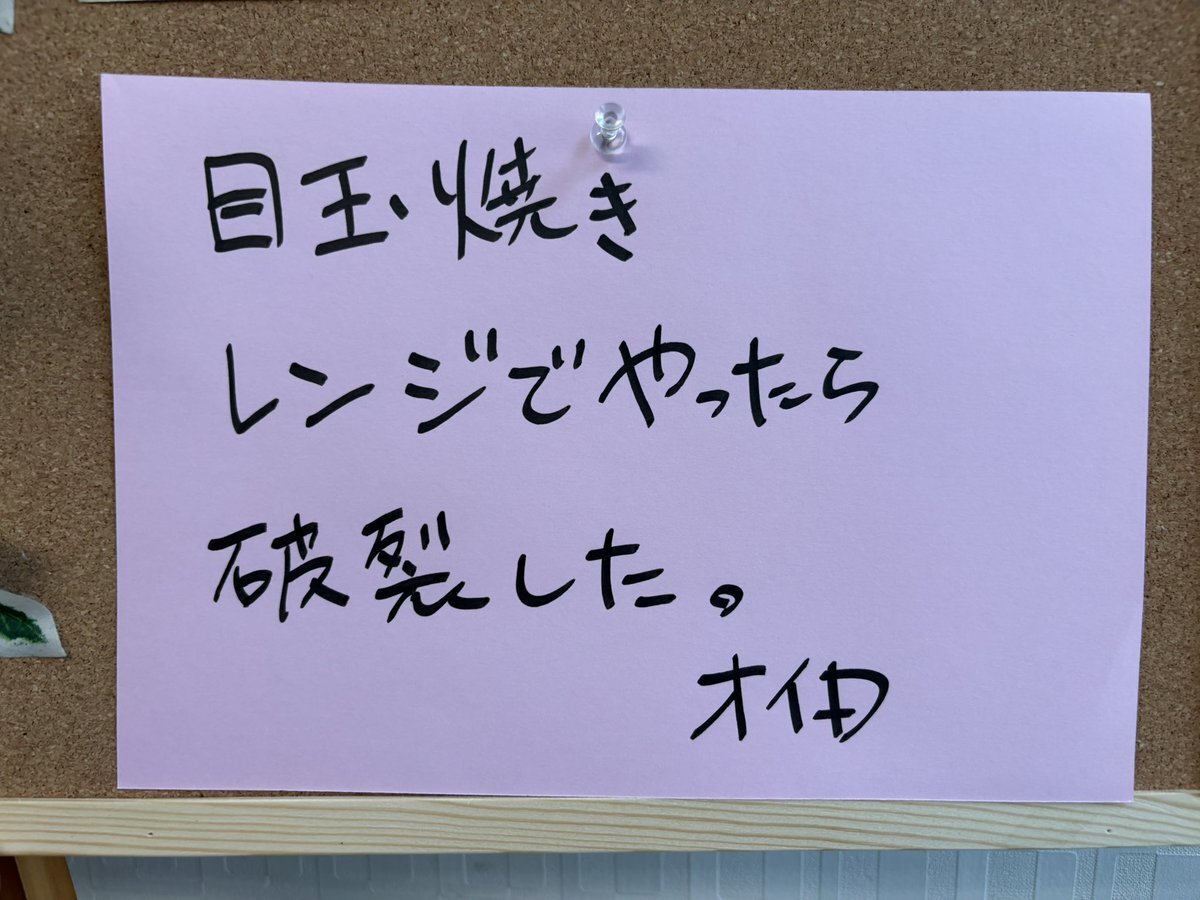 目玉焼き
レンジでやったら
破裂した。